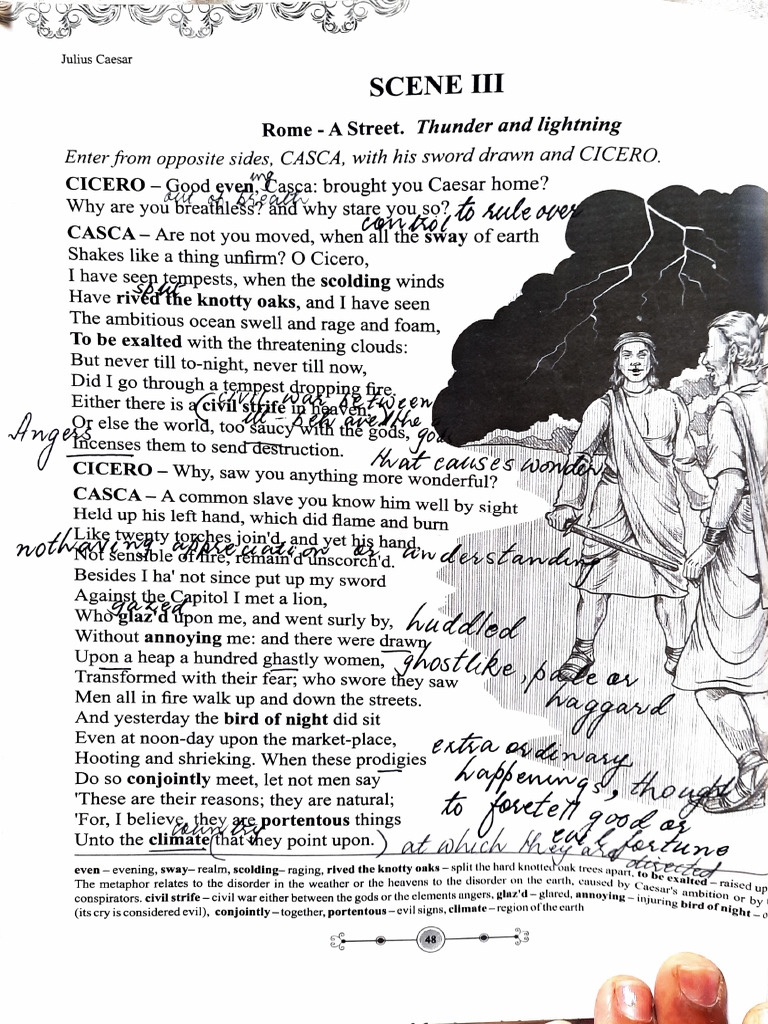 Julius Caesar
SCENE III
Rome - A Street. Thunder and lightning
Enter from opposite sides, CASCA, with his sword drawn and CICERO.
ing
CICERO – Good even, Casca: brought you Caesar home?
out of breath
Why are you breathless? and why stare you so? to rule over
control
CASCA – Are not you moved, when all the sway of earth
Shakes like a thing unfirm? O Cicero,
I have seen tempests, when the scolding winds
split
Have rived the knotty oaks, and I have seen
The ambitious ocean swell and rage and foam,
To be exalted with the threatening clouds:
But never till to-night, never till now,
Did I go through a tempest dropping fire.
civil war between
Either there is a (civil strife in heaven,
the
Or else the world, too saucy with the gods, gods
Angers
Incenses them to send destruction.
that causes wonder
CICERO – Why, saw you anything more wonderful?
CASCA – A common slave you know him well by sight
Held up his left hand, which did flame and burn
Like twenty torches join'd, and yet his hand,
not having appreciation or understanding
Not sensible of fire, remain'd unscorch'd.
Besides I ha' not since put up my sword
Against the Capitol I met a lion,
gazed
Who glaz'd upon me, and went surly by, huddled
Without annoying me: and there were drawn
Upon a heap a hundred ghastly women, ghostlike, pale or
Transformed with their fear; who swore they saw
haggard
Men all in fire walk up and down the streets.
And yesterday the bird of night did sit
Even at noon-day upon the market-place, extra ordinary
Hooting and shrieking. When these prodigies
happenings, thought
Do so conjointly meet, let not men say
'These are their reasons; they are natural; to foretell good or
'For, I believe, they are portentous things
country evil fortune
Unto the climate (that they point upon.) at which they are directed
even – evening, sway – realm, scolding – raging, rived the knotty oaks – split the hard knotted oak trees apart, to be exalted – raised up
The metaphor relates to the disorder in the weather or the heavens to the disorder on the earth, caused by Caesar's ambition or by
conspirators. civil strife – civil war either between the gods or the elements angers, glaz'd – glared, annoying – injuring bird of night –
(its cry is considered evil), conjointly – together, portentous – evil signs, climate – region of the earth
48